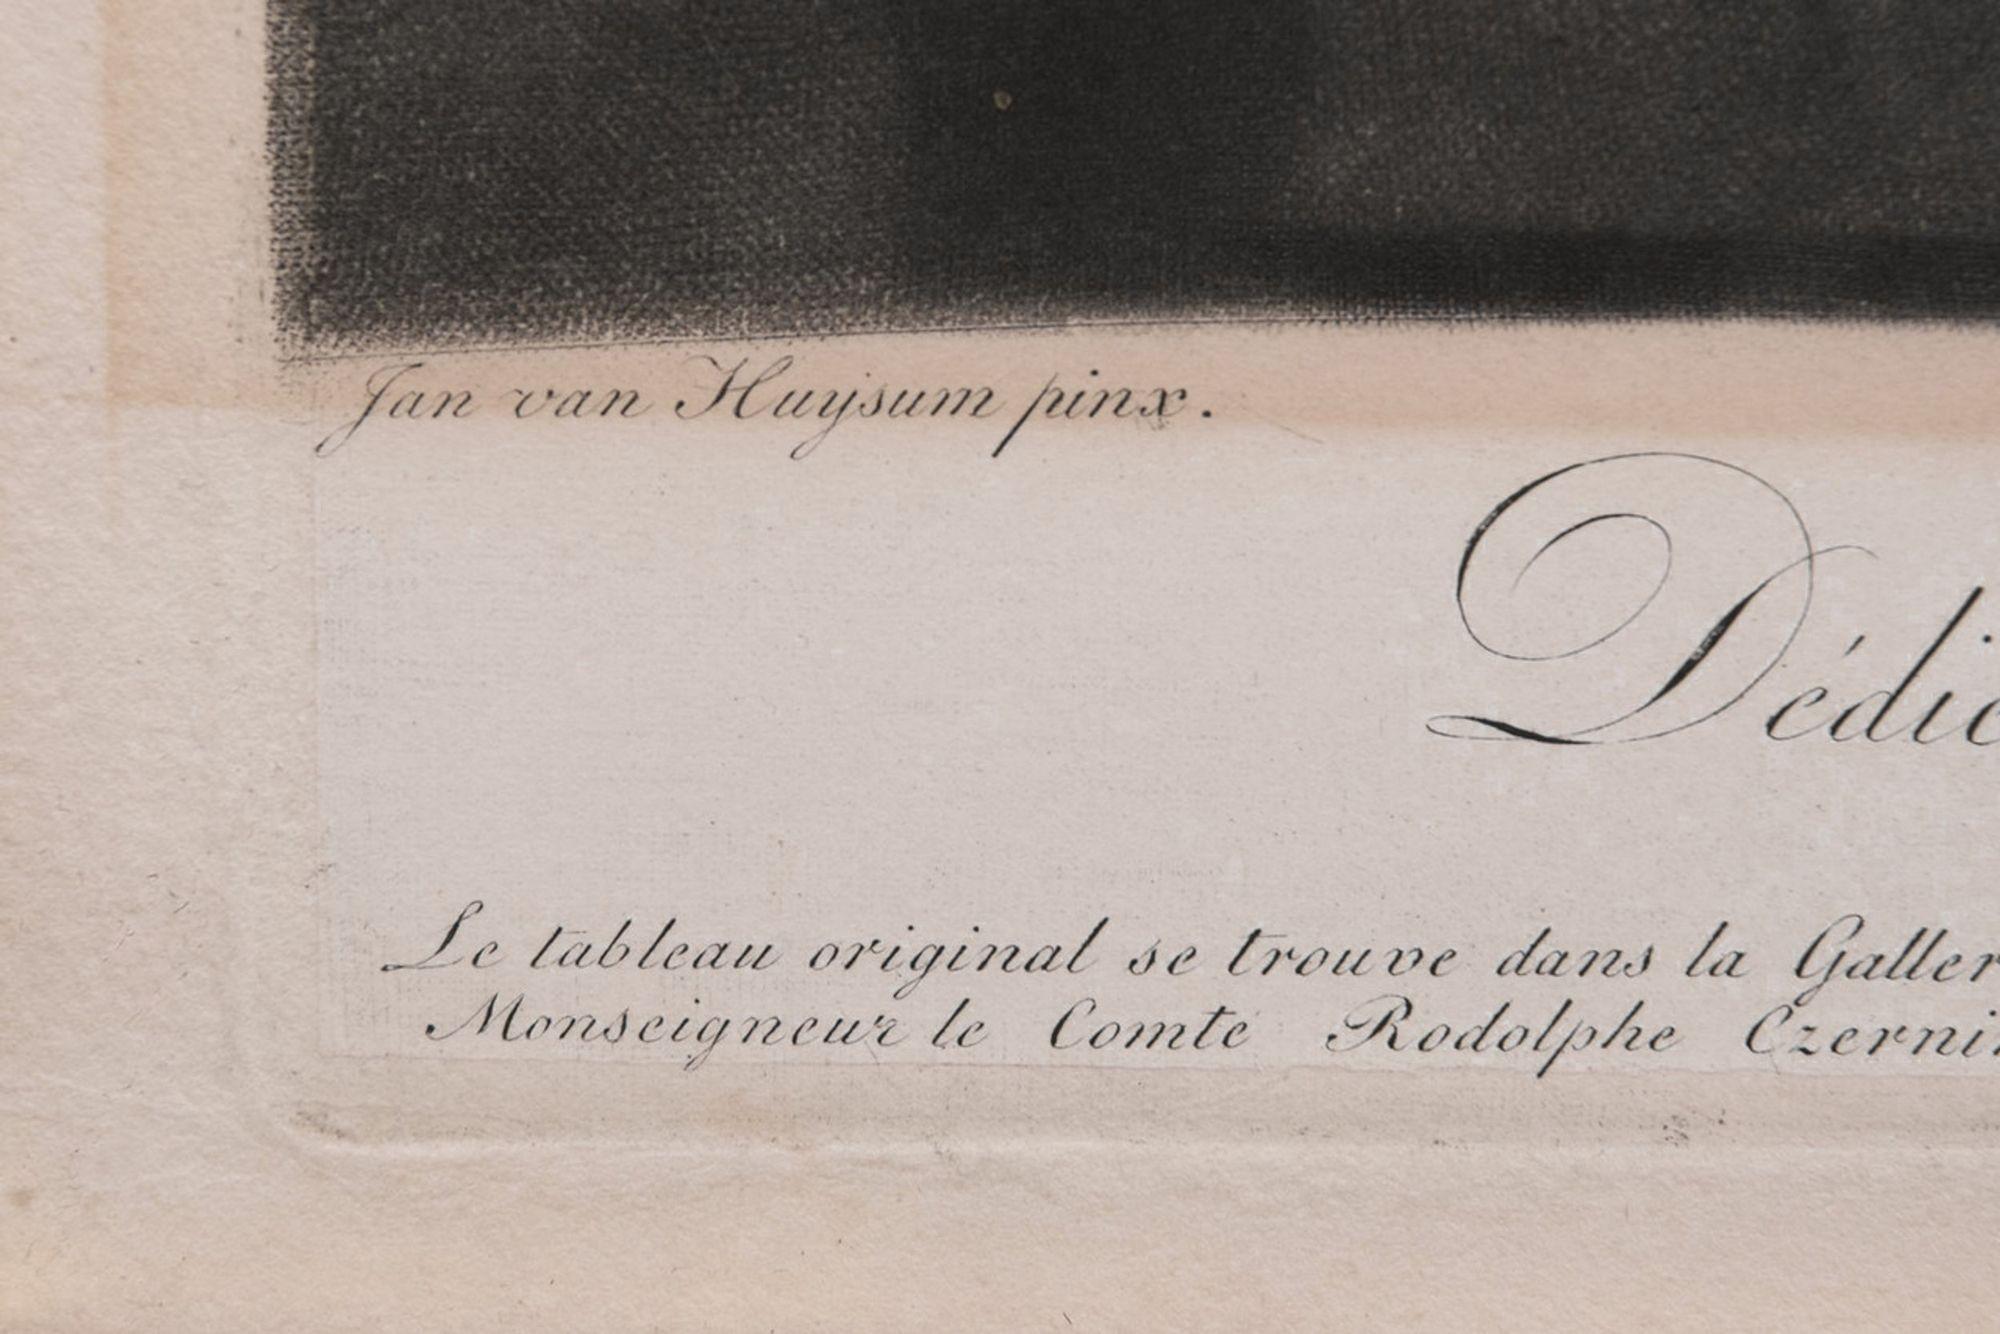 Jan van Huysum pinx.
Dédic
Le tableau original se trouve dans la Galler
Monseigneur le Comte Rodolphe Czernin